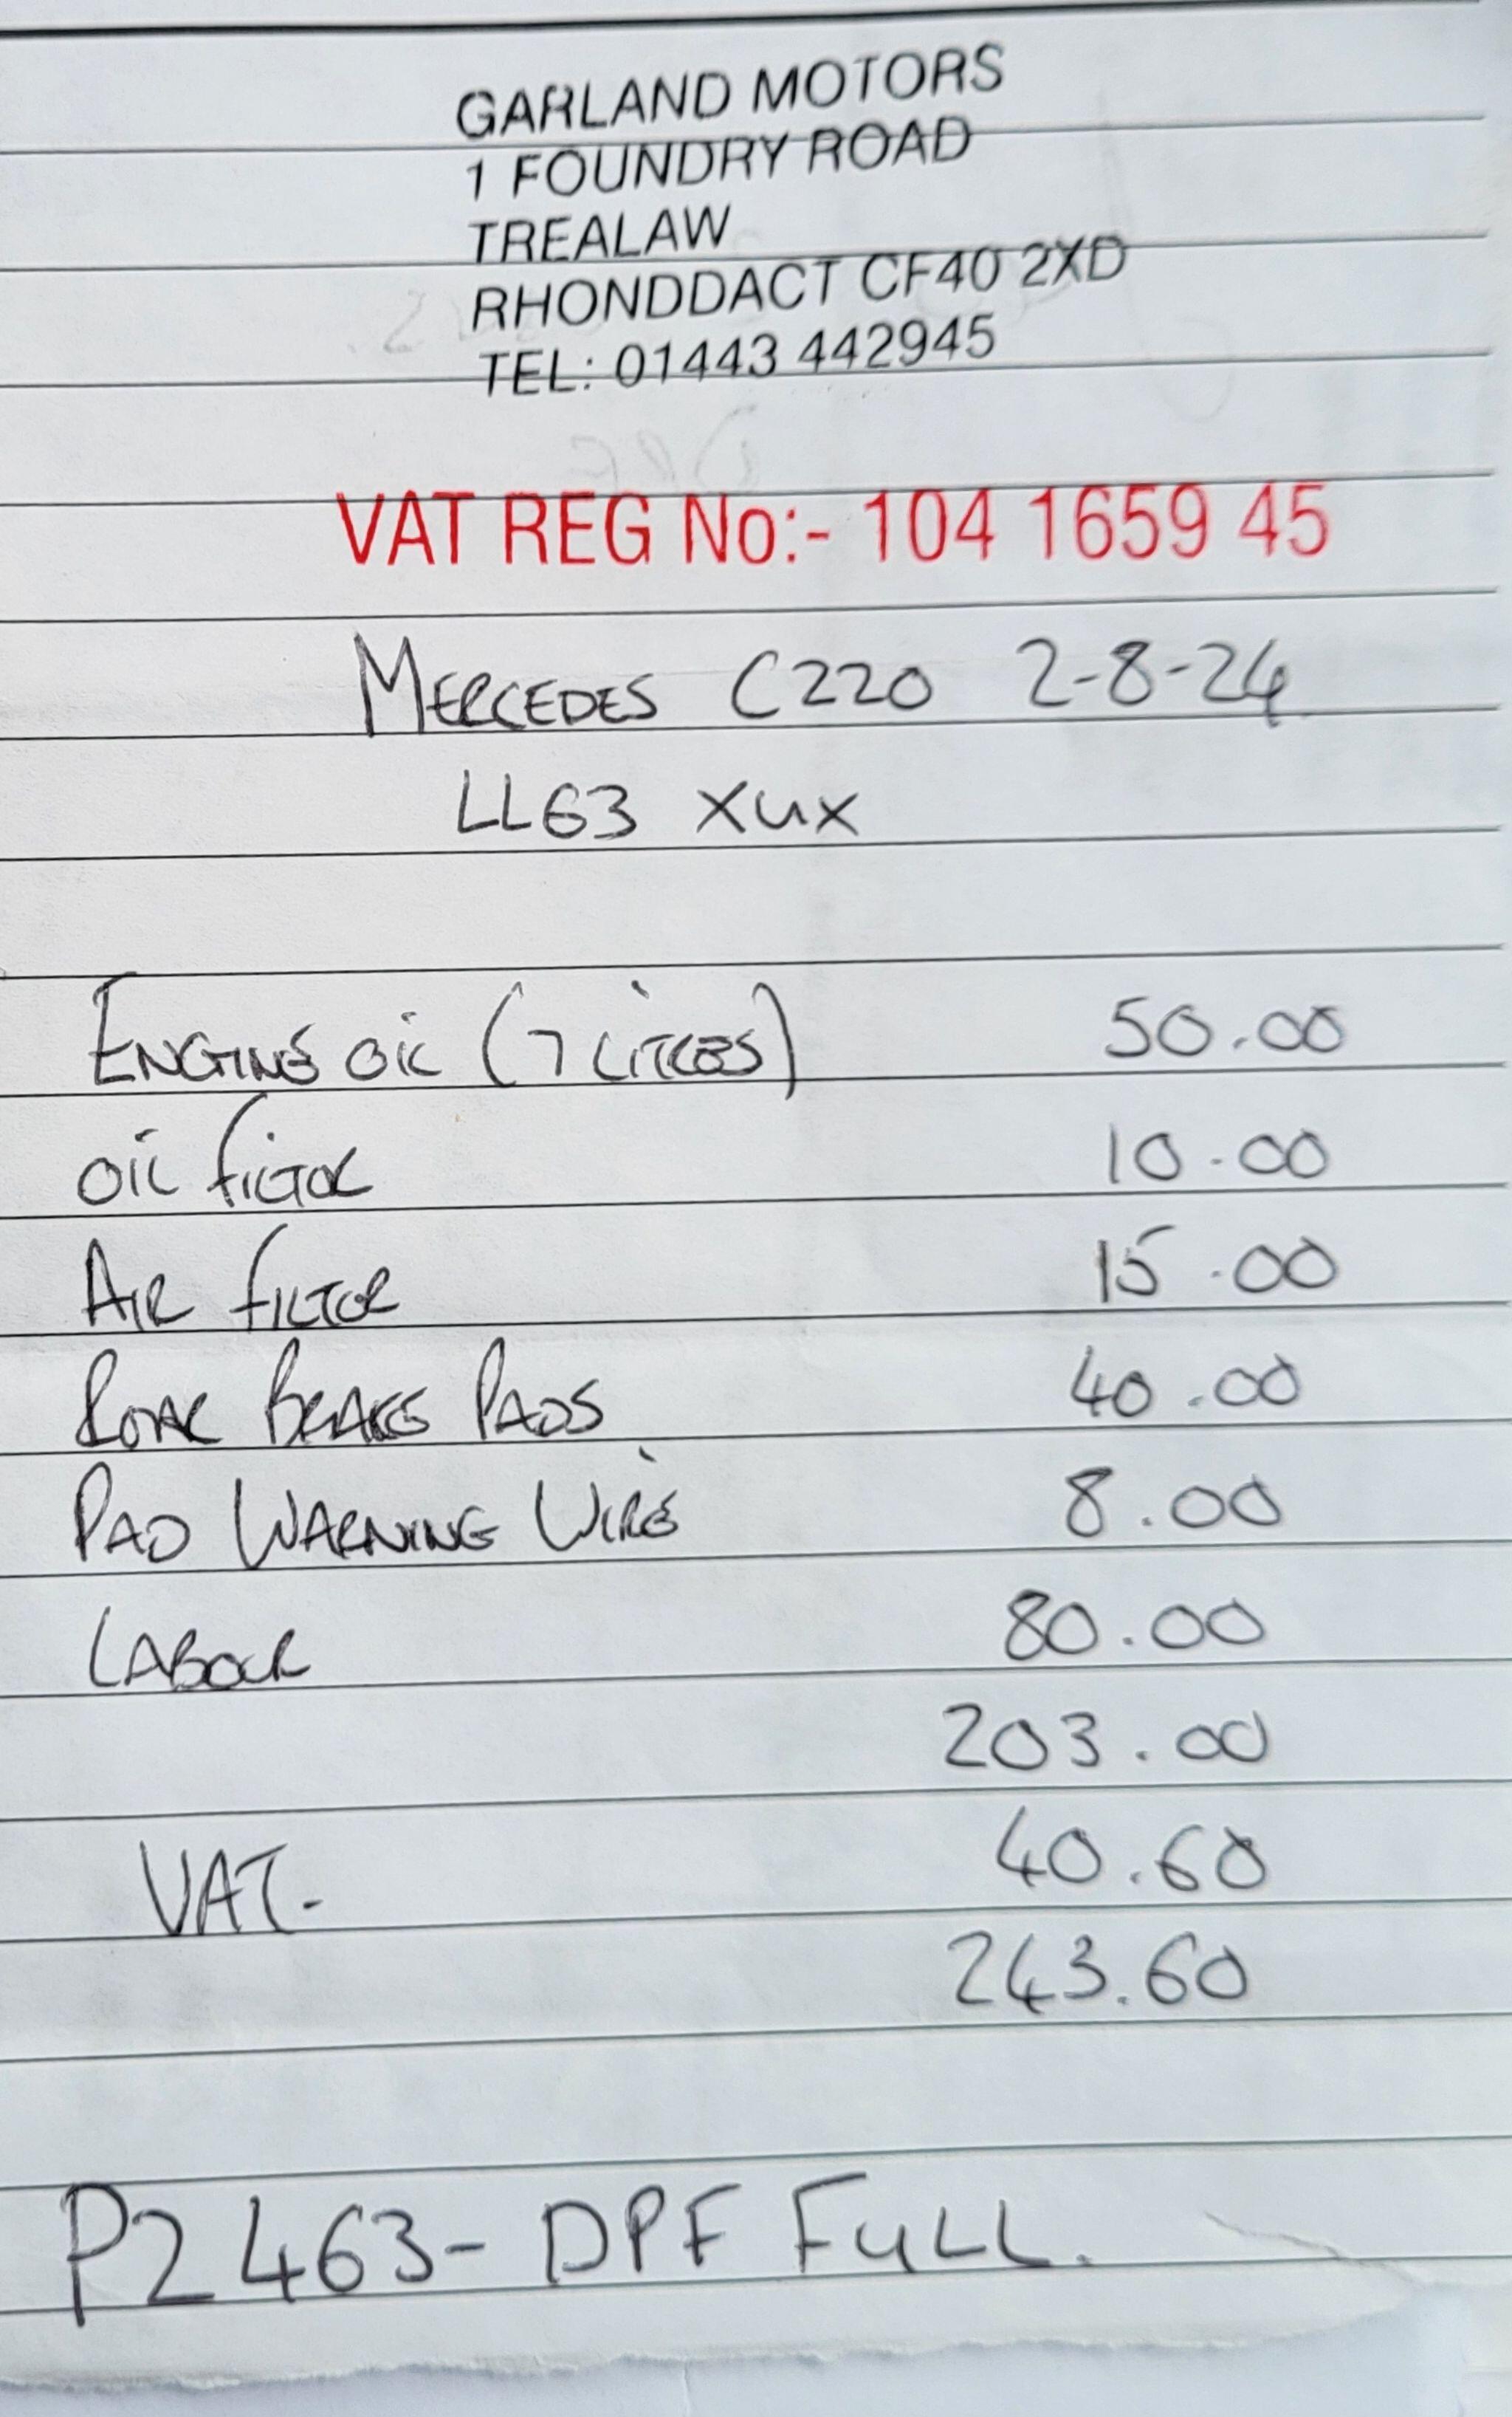 GARLAND MOTORS
1 FOUNDRY ROAD
TREALAW
RHONDDACT CF40 2XD
TEL: 01443 442945
VAT REG No:- 104 1659 45
MERCEDES C220 2-8-24
LL63 XUX
ENGINE OIL (7 LITRES) 50.00
OIL FILTER 10.00
AIR FILTER 15.00
REAR BRAKE PADS 40.00
PAD WARNING WIRE 8.00
LABOUR 80.00
203.00
VAT. 40.60
243.60
P2463- DPF FULL.